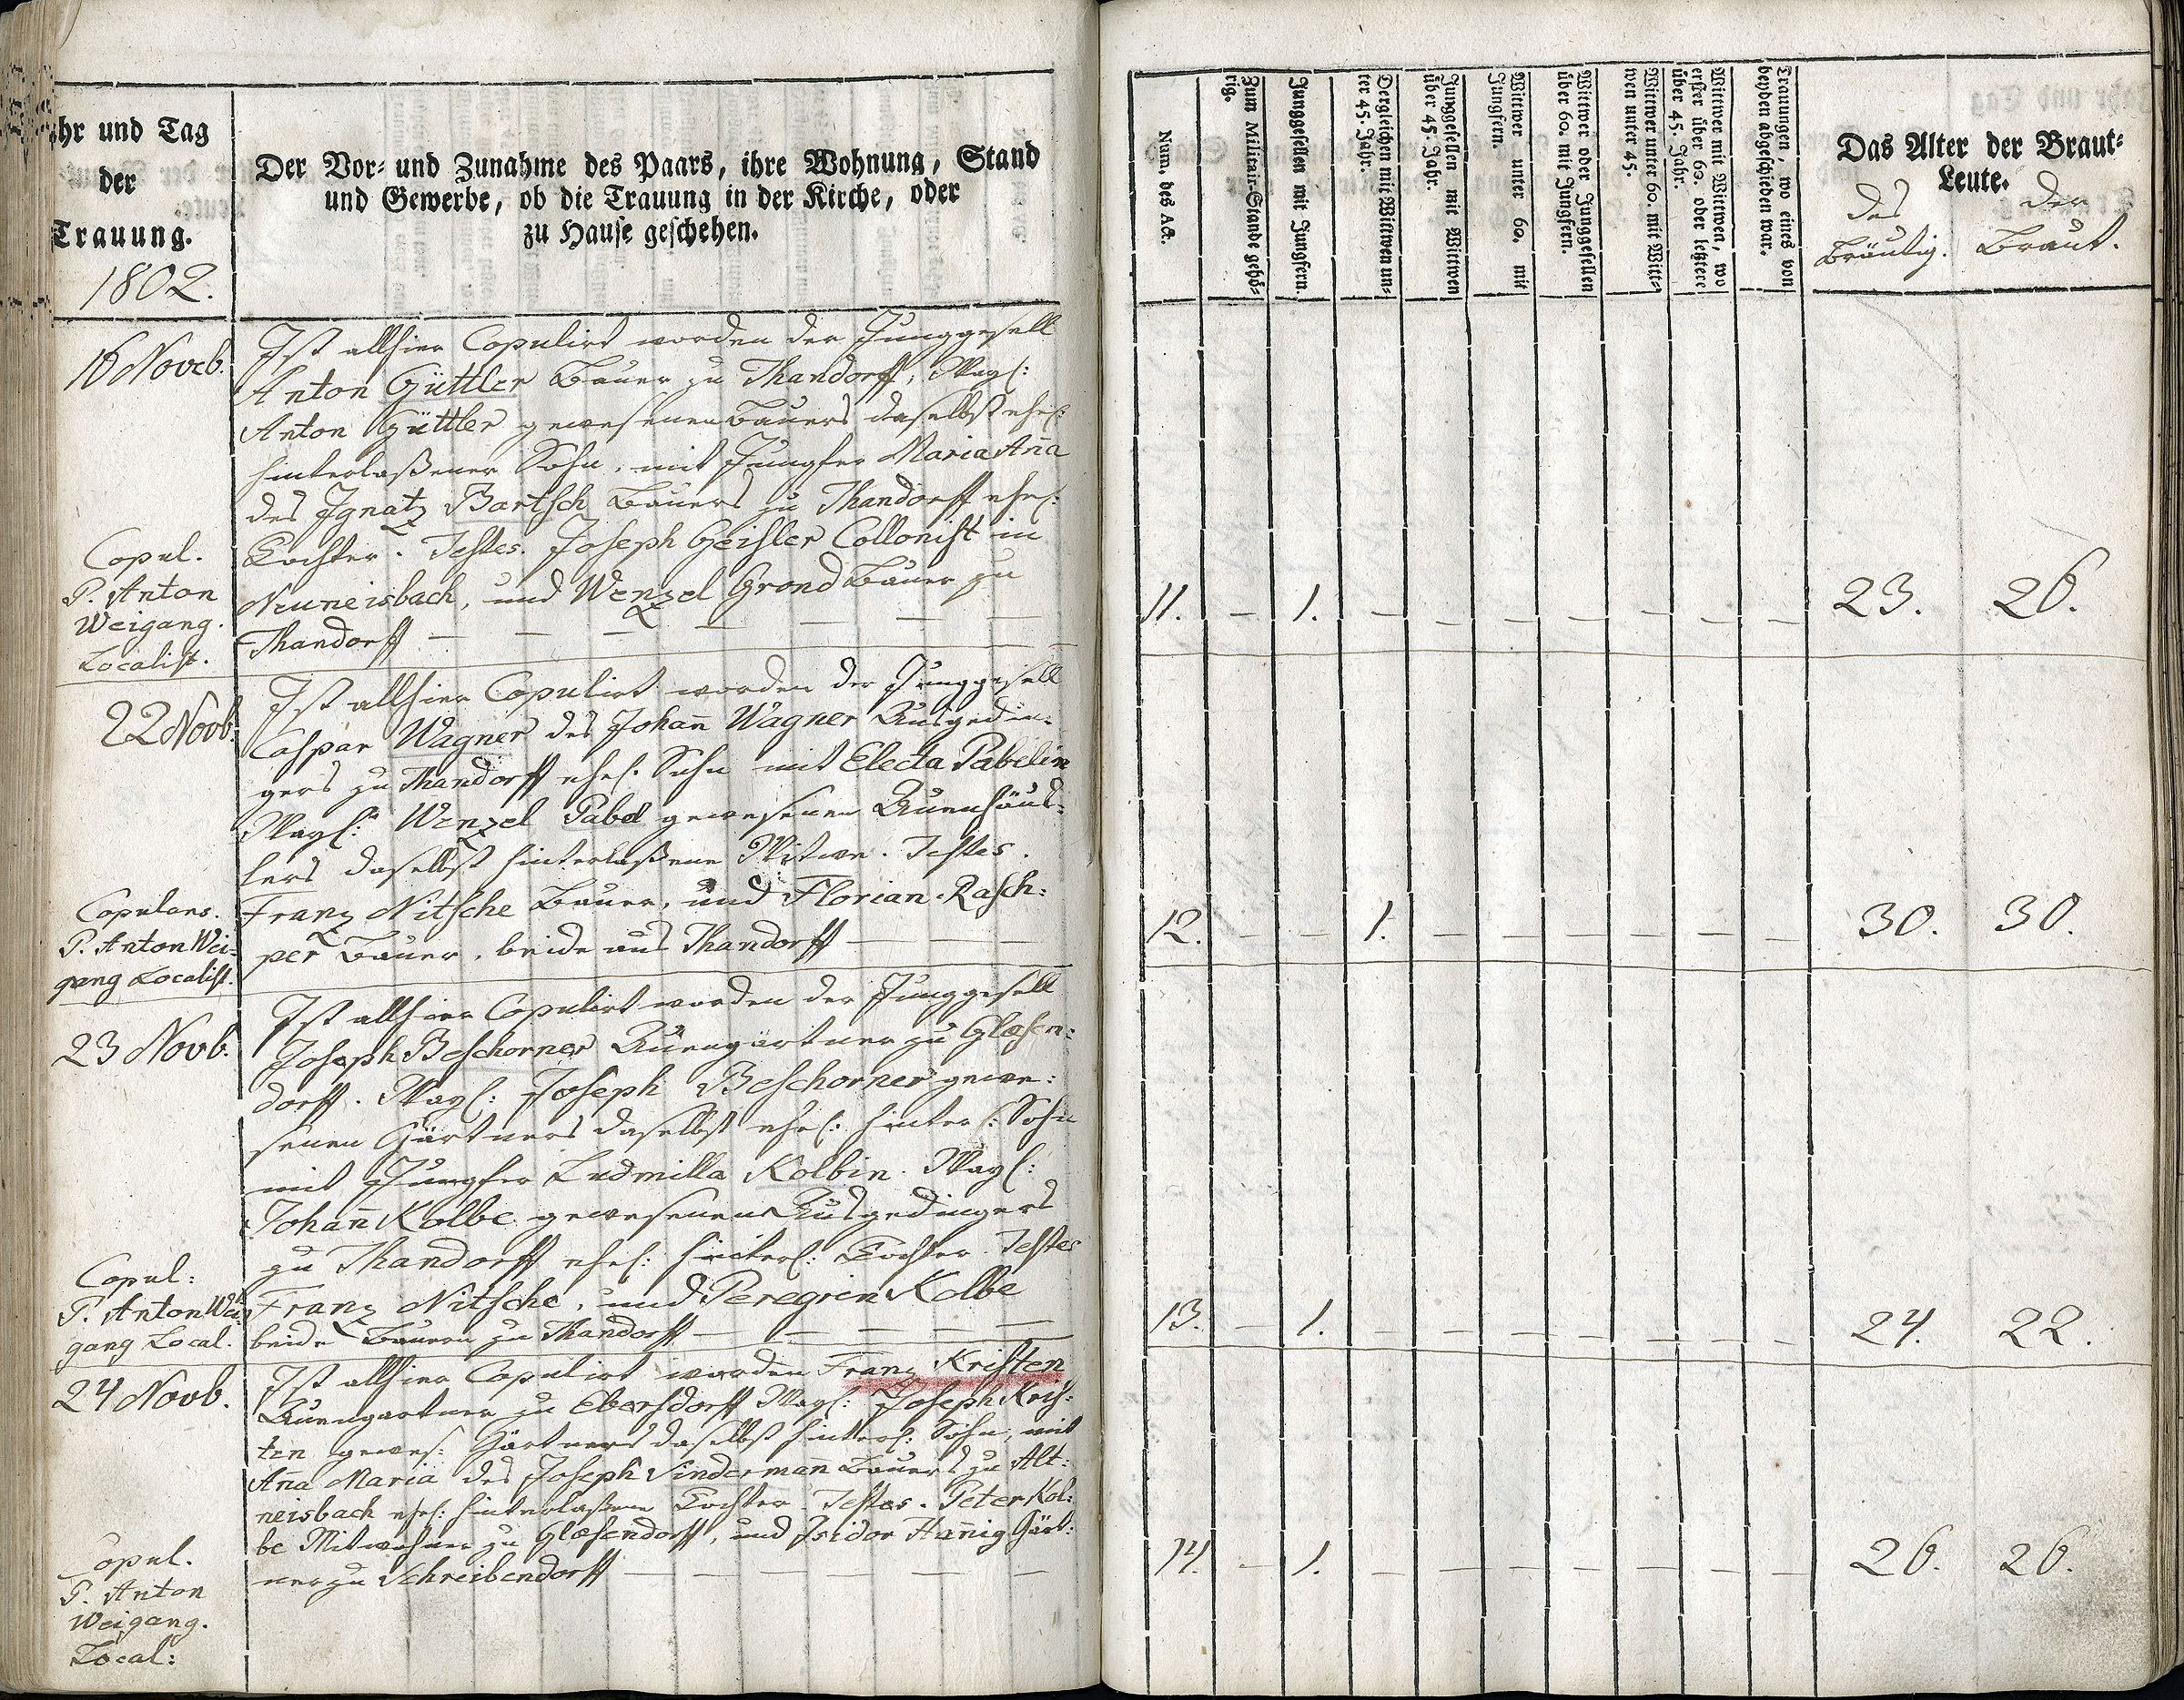 hr und Tag
der
Trauung.
1802.
Der Vor- und Zunahme des Paars, ihre Wohnung, Stand
und Gewerbe, ob die Trauung in der Kirche, oder
zu Hause geschehen.
16 Novb.
Ist allhier Copulirt worden der Junggesell
Anton Güttler Bauer zu Thandorff, Wayl:
Anton Güttler gewesenen Bauers daselbst ehel:
hinterlaßener Sohn, mit Jungfer Maria Aña
des Ignatz Bartsch Bauers zu Thandorff ehel:
Tochter. Testes. Joseph Geisler Collonist in
Neuneisbach, und Wenzel Grond Bauer zu
Thandorff
Copul.
P. Anton
Weigang.
Localist.
22 Novb.
Ist allhier Copulirt worden der Junggesell
Caspar Wagner des Johañ Wagner Ausgedin-
gers zu Thandorff ehel. Sohn mit Electa Pabelin
Wayl: Wenzel Pabel gewesenen Auenhäus-
lers daselbst hinterlaßene Witwe. Testes.
Franz Nitsche Bauer, und Florian Rasch:
per Bauer, beide aus Thandorff
Copulans.
P. Anton Wei-
gang Localist.
23 Novb.
Ist allhier Copulirt worden der Junggesell
Joseph Beschorner Auengärtner zu Glæsen:
dorff. Wayl: Joseph Beschorner gewe:
senen Gärtners daselbst ehel: hinterl: Sohn
mit Jungfer Ludmilla Kolbin. Wayl:
Johañ Kolbe gewesenen Ausgedingers
zu Thandorff ehel: hinterl: Tochter. Testes
Franz Nitsche, und Peregrin Kolbe
beide Bauern zu Thandorff
Copul:
P. Anton Wei-
gang Local.
24 Novb.
Ist allhier Copulirt worden Franz Kristen
Auengartner zu Ebersdorff Wayl: Joseph Kris:
ten gewes: Gärtners daselbst hinterl: Sohn, mit
Aña Maria des Joseph Sindermañ Bauers zu Alt:
neisbach ehel: hinterlaßene Tochter. Testes. Peter Kol:
be Mitwohner zu Glæsendorff, und Isidor Hañig Gärt:
ner zu Schreibendorff
Copul.
P. Anton
Weigang.
Local:
Num. des Act.
Zum Militair-Stande gehö-
rig.
Junggesellen mit Jungfern.
Dergleichen mit Wittwen un-
ter 45. Jahr.
Junggesellen mit Wittwen
über 45. Jahr.
Wittwer unter 60. mit
Jungfern.
Wittwer oder Junggesellen
über 60. mit Jungfern.
Wittwer unter 60. mit Witt-
wen unter 45.
Wittwer mit Witwen, wo
erster über 60. oder letztere
über 45. Jahr.
Trauungen, wo eines von
beyden abgeschieden war.
Das Alter der Braut-
Leute.
des der
Bräutig. Braut.
11. – 1. – – – – – – – 23. 26.
12. – – 1. – – – – – – 30. 30.
13. – 1. – – – – – – – 24. 22.
14. – 1. – – – – – – – 26. 26.